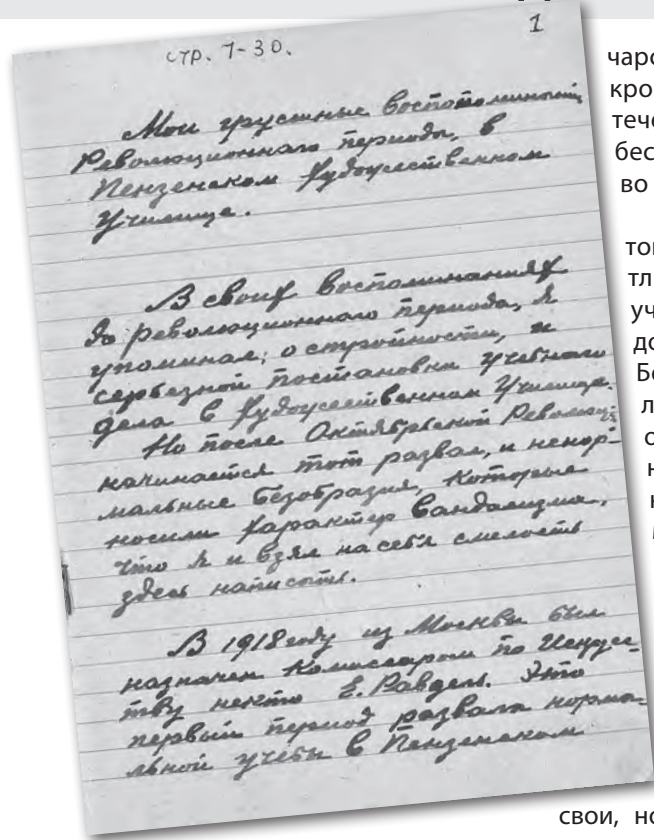 стр. 7-30.
1
Мои грустные воспоминаний
Революционнаго периода, в
Пензенском Художественном
Училище.
В своих воспоминаниях
до революционнаго периода, я
упоминал; о стройности, и
серьезной постановки учебнаго
дела в Художественном Училище.
Но после Октябрьской Революц:
начинается тот развал, и ненор-
мальные безобразия, которые
носили характер вандализма,
что я и взял на себя смелость
здесь написать.
В 1918 году из Москвы был
назначен Комиссаром по Искус-
тву некто Е. Равдель. Это
первый период развала норма-
льной учебы в Пензенском
чаро
кро
тече
бес
во
тог
тл
уч
до
Бо
л
с
н
н
свои, но